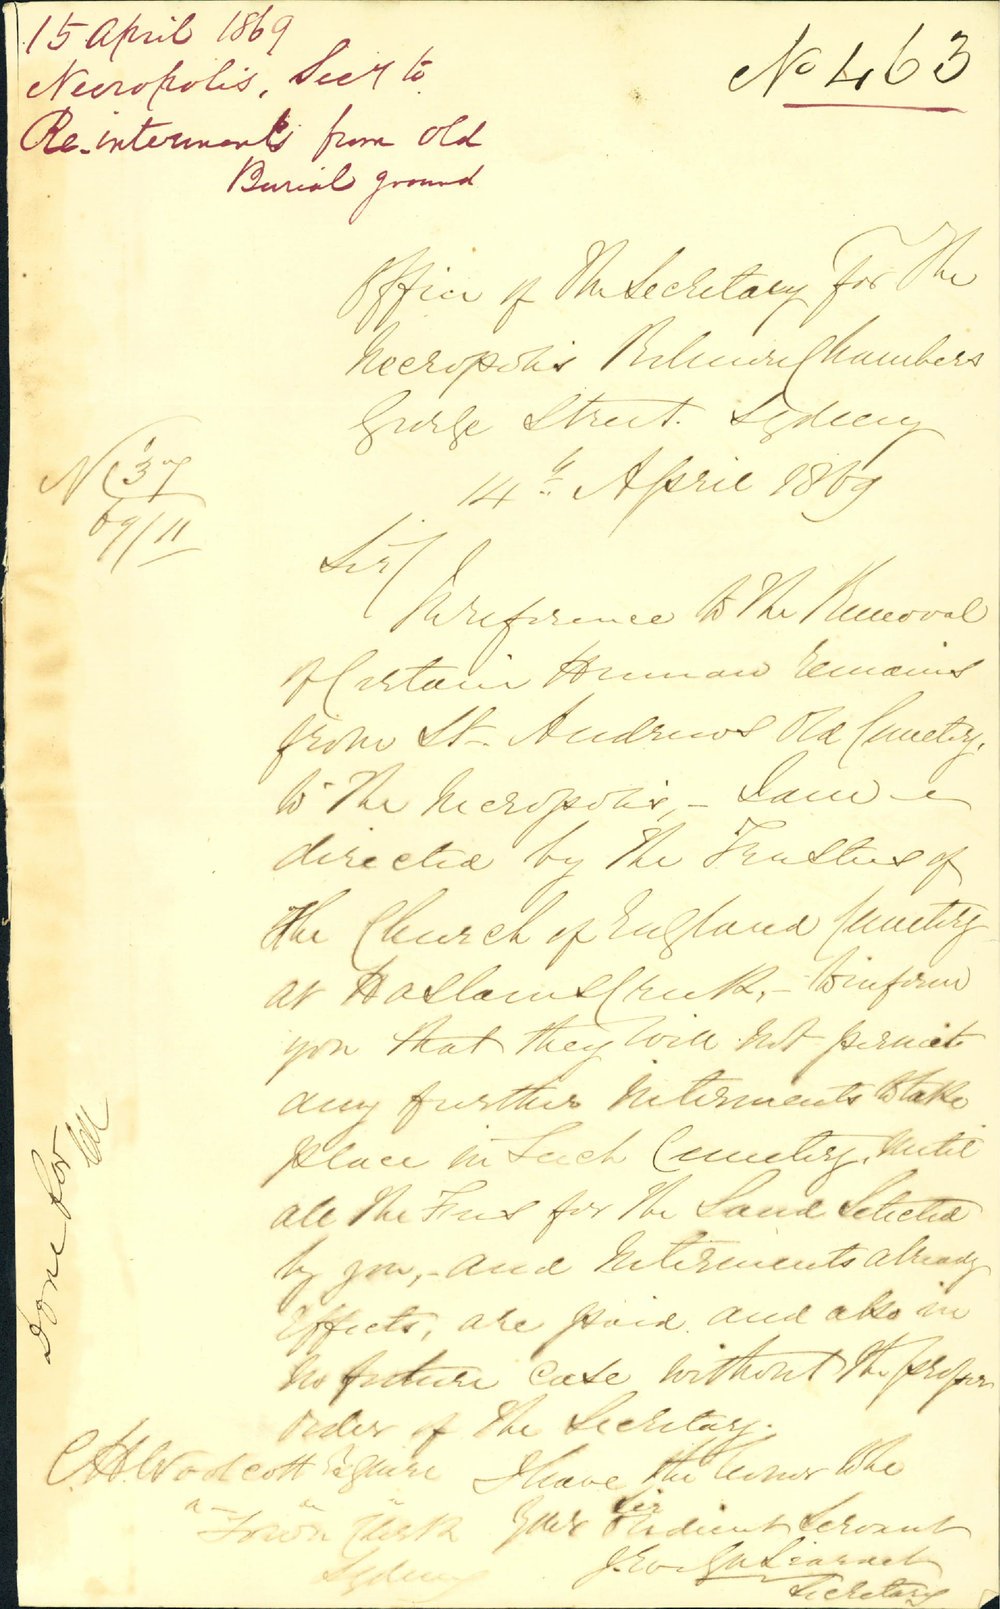 15 April 1869
Necropolis, Secr to
Re-interments from old
Burial ground
No 463
Office of the Secretary for the
Necropolis Chambers
George Street. Sydney
14th April 1869
No 37
69/11
Sir,
In reference to the Removal
of Certain Human remains
from St. Andrews Old Cemetery,
to the Necropolis, - I am
directed by the Trustees of
the Church of England Cemetery
at Haslams Creek, - to inform
you that they will not permit
any further Interments to take
place in Such Cemetery, until
all the Fees for the Land Selected
by you, - and Interments already
Effects, are paid. and also in
no future case without the proper
order of the Secretary.
I have the honor to be
Sir
Your Obedient Servant
Secretary
C. H. Woolcott Esquire
Town Clerk
Sydney
Done for